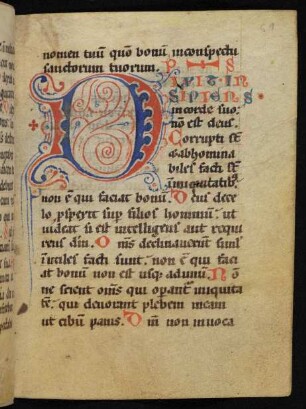 nomen tuū qm̄ bonū inconspectu
sanctorum tuorum. PS
DIXIT IN
SIPIENS
incorde suo.
nō est deus.
Corrupti sт̄
& abhomina
biles facti sт̄
ī iniquitatib;
non ē qui faciat bonū. Deus de ce
lo pspexit sup filios hominū. ut
uideat si est intelligens aut requi
rens dm̄. Oms declinauerunt simł
inutiles facti sunt. non ē qui faci
at bonū non est usq; adunū. Nō
ne scient oms qui opant̄ iniquita
tē. qui deuorant plebem meam
ut cibum panis. Dm̄ non inuoca